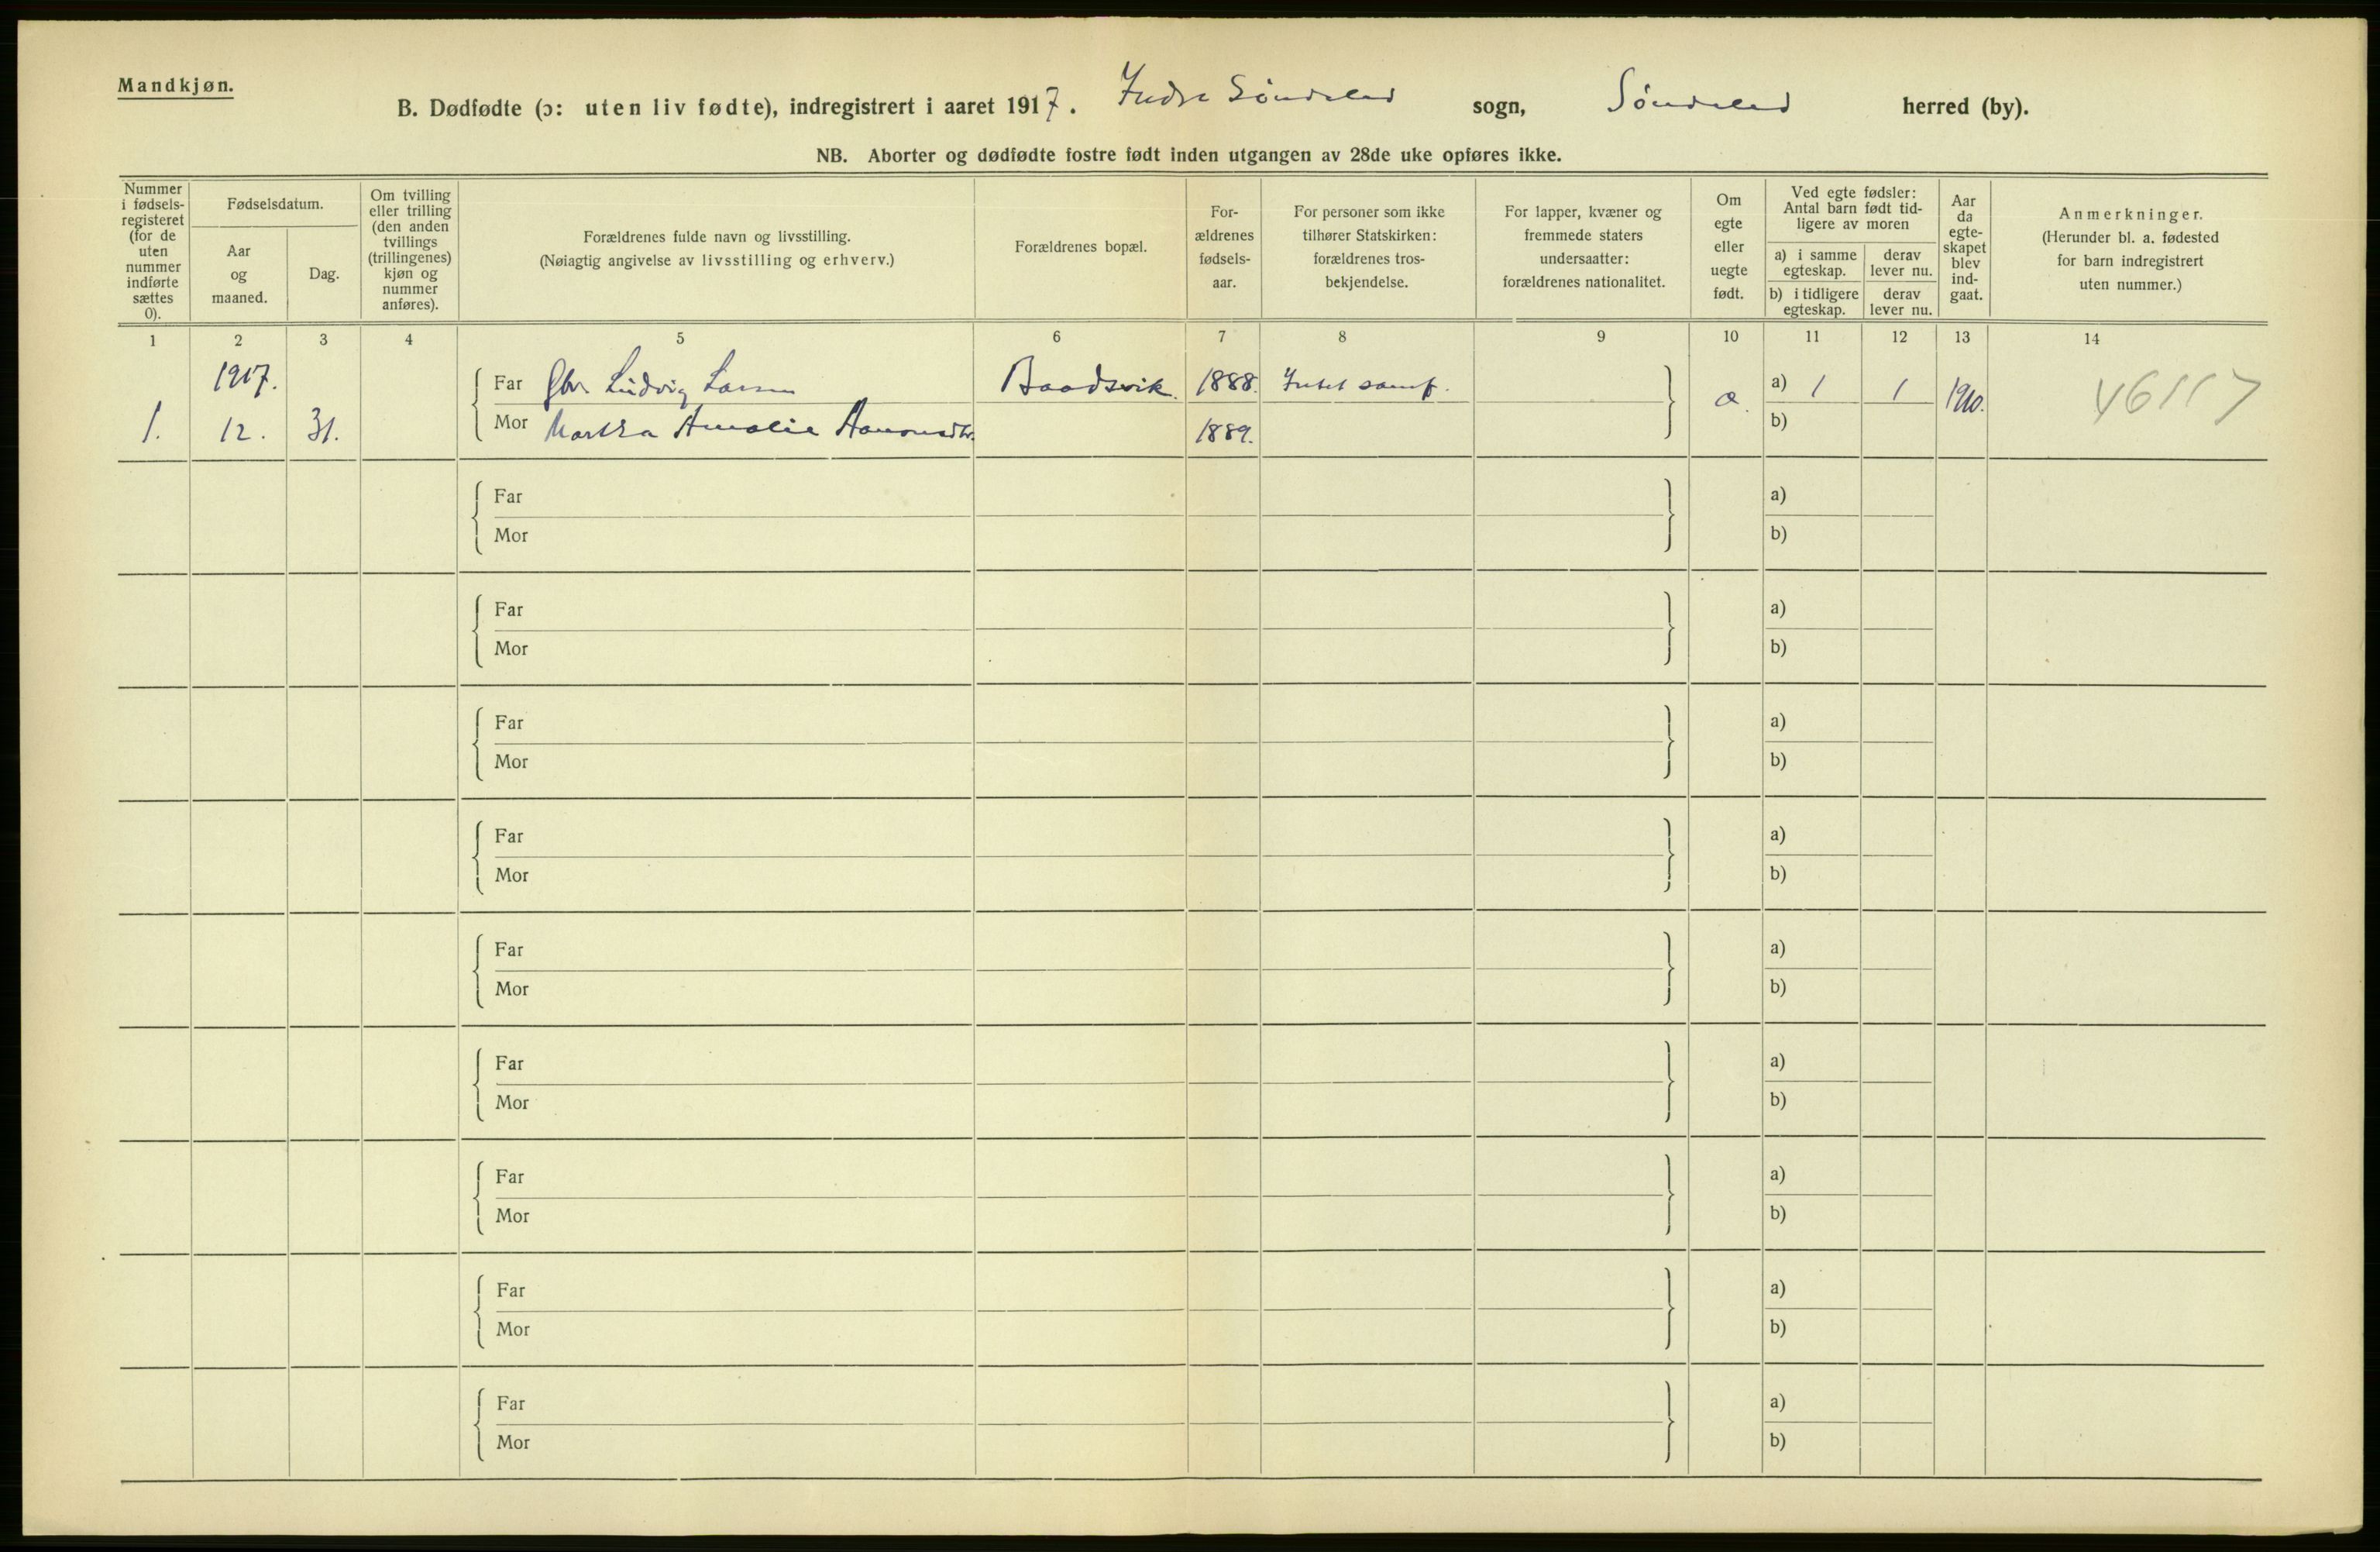 Mandkjøn.
B. Dødfødte (ɔ: uten liv fødte), indregistrert i aaret 1917. Indre Søndeled sogn, Søndeled herred (by).
NB. Aborter og dødfødte fostre født inden utgangen av 28de uke opføres ikke.
Nummer
i fødsels-
registeret
(for de
uten
nummer
indførte
sættes
0).
Fødselsdatum.
Aar
og
maaned.
Dag.
Om tvilling
eller trilling
(den anden
tvillings
(trillingenes)
kjøn og
nummer
anføres).
Forældrenes fulde navn og livsstilling.
(Nøiagtig angivelse av livsstilling og erhverv.)
Forældrenes bopæl.
For-
ældrenes
fødsels-
aar.
For personer som ikke
tilhører Statskirken:
forældrenes tros-
bekjendelse.
For lapper, kvæner og
fremmede staters
undersaatter:
forældrenes nationalitet.
Om
egte
eller
uegte
født.
Ved egte fødsler:
Antal barn født tid-
ligere av moren
a) i samme
egteskap.
derav
lever nu.
b) i tidligere
egteskap.
derav
lever nu.
Aar
da
egte-
skapet
blev
ind-
gaat.
Anmerkninger.
(Herunder bl. a. fødested
for barn indregistrert
uten nummer.)
1 2 3 4 5 6 7 8 9 10 11 12 13 14
1917.
Far Gbr. Ludvig Larsen Baadsvik. 1888. Intet samf. a) 1 1
1. 12. 31. 1910. 46117
Mor Martha Amalie 1889. b)
Far a)
Mor b)
Far a)
Mor b)
Far a)
Mor b)
Far a)
Mor b)
Far a)
Mor b)
Far a)
Mor b)
Far a)
Mor b)
Far a)
Mor b)
Far a)
Mor b)